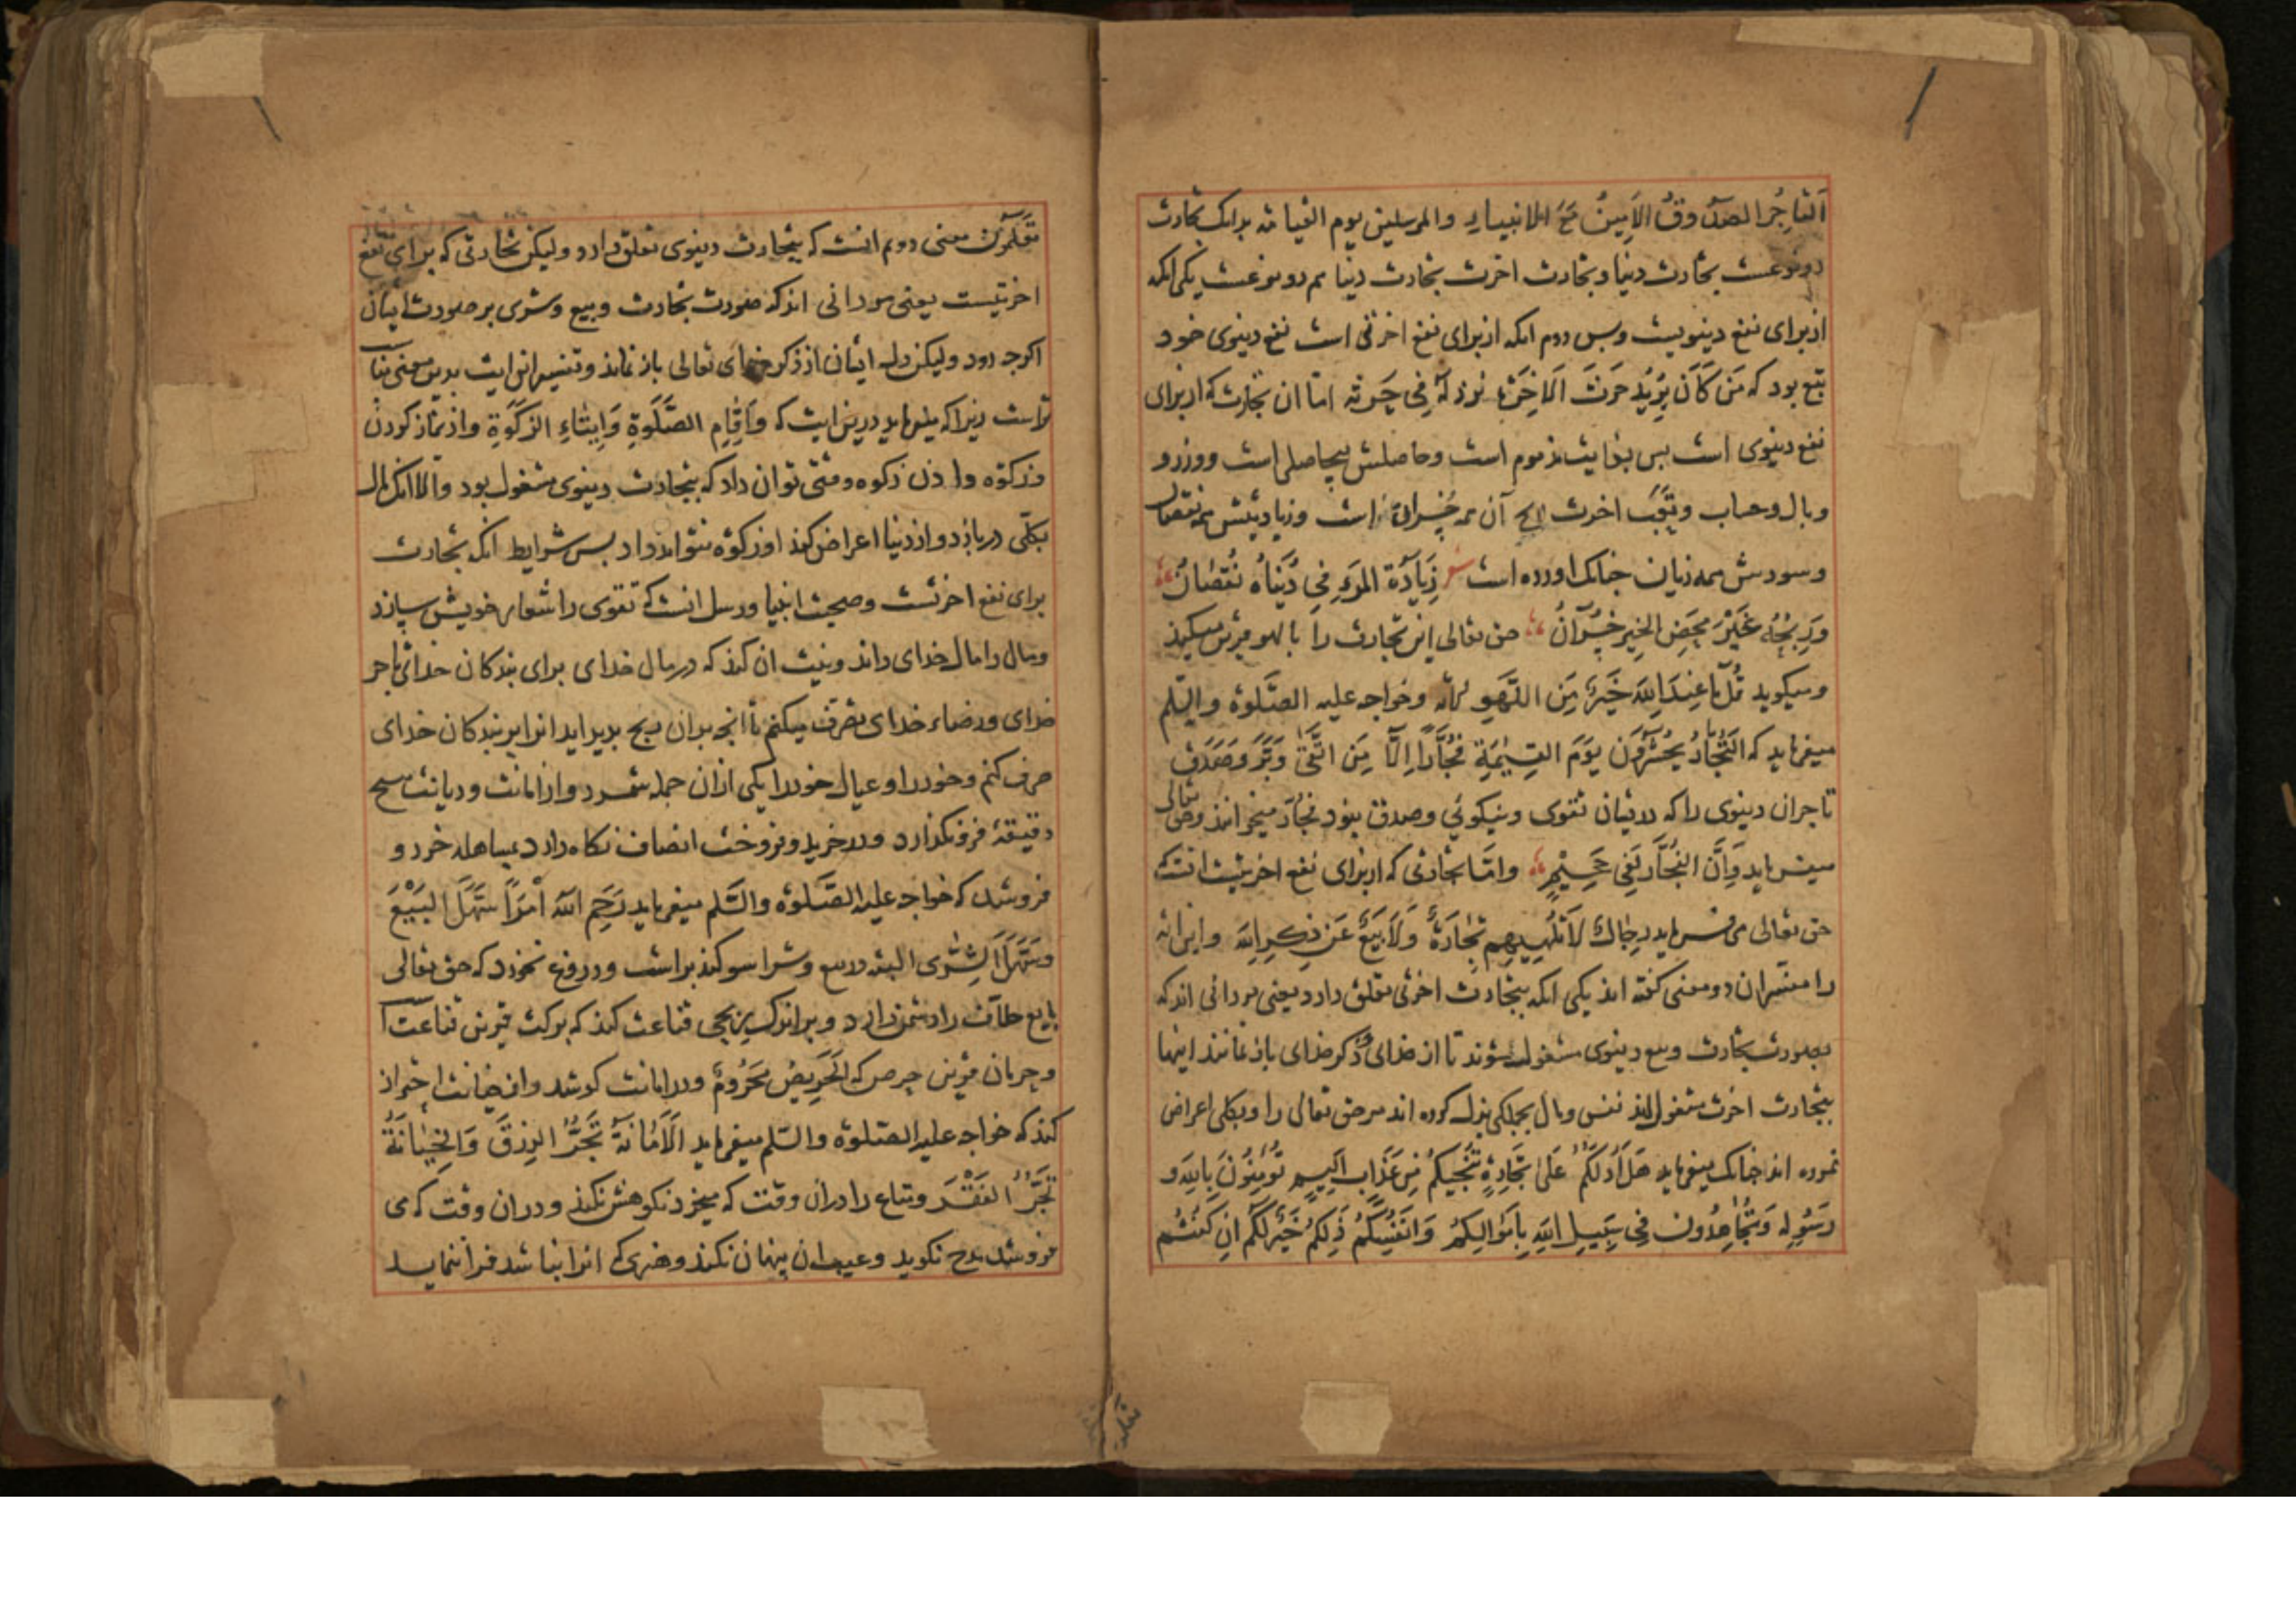 اَلتاجِرُ الصدُوقُ الاَمِينُ مَعَ الانبیاءِ والمرسلین یوم القیامه بدانک تجارت
دو نوعست تجارت دنیا و تجارت اخرت تجارت دنیا هم دو نوعست یکی انکه
از برای نفع دینویست وبس دوم انکه از برای نفع اخرتی است نفع دینوی خود
تبع بود که مَن کَانَ یُرِیدُ حَرثَ الاخِرَةِ نزد لَهُ فِی حَرثِه اما ان تجارت که از برای
نفع دینوی است بس بغایت مذموم است وحاصلش بیحاصلی است ووزرو
وبال وحساب و اخرت آن همه خُسران است وزیادیتش همه نقصان
وسودش همه زیان چنانک اورده است شعر زِیَادَةُ المَرءِ فِی دُنیَاهُ نُقصَانُ
وَرِبحُهُ غَیرَ مَحضِ الخیرِ خُسرَانُ حق تعالی این تجارت را با لهو قرین میکند
ومیکوید قُل مَا عِندَ اللهِ خَیرٌ مِنَ اللَّهوِ وخواجه علیه الصَّلوة والسّلم
میفرماید که التُّجَّارُ یُحشَرُونَ یَومَ القِیٰمَةِ فُجَّارًا اِلّا مَنِ اتَّقیٰ وَبَرَّ وَصَدَقَ
تاجران دینوی را که در ایشان تقوی ونیکوئی وصدق نبود فجّار میخوانند وحق تعالی
میفرماید وَاِنَّ الفُجَّارَ لَفِی جَحِیمٍ وامّا تجارتی که از برای نفع اخرتیست انست که
حق تعالی میفرماید رِجَالٌ لَا تُلهِیهِم تِجَارَةٌ وَلَا بَیعٌ عَن ذِکرِ اللهِ واین ایه
را مفسّران دو معنی کفته اند یکی انکه بتجارت اخرتی تعلق دارد یعنی مردانی اند که
بصورت تجارت وبیع دینوی مشغول نشوند تا از خدای و ذکر خدای باز نمانند اینها
بتجارت اخرت مشغول اند نفس ومال بجملکی بذل کرده اند مرحق تعالی را وبکلی اعراض
نموده اند چنانک میفرماید هَل اَدُلُّکُم عَلیٰ تِجَارَةٍ تُنجِیکُم مِن عَذَابٍ اَلِیمٍ تُؤمِنُونَ بِاللهِ وَ
رَسُولِه وَتُجَاهِدُونَ فِی سَبِیلِ اللهِ بِاَموَالِکُم وَاَنفُسِکُم ذٰلِکُم خَیرٌ لَکُم اِن کُنتُم
تعلمو
تَعلَمُونَ معنی دویم انست که بتجارت دینوی تعلق دارد ولیکن تجارتی که برای نفع
اخرتیست یعنی مردانی اند که صورت تجارت وبیع وشری بر صورت ایشان
اکرچه رود ولیکن دل ایشان از ذکر خدای تعالی باز نماند وتفسیر این ایت بدین معنی مناسب
تراست زیرا که میفرماید درین ایت که وَاِقَامِ الصَّلٰوةِ وَاِیتَاءِ الزَّکٰوةِ واز نماز کردن
وزکوة دادن زکوه وقتی توان داد که بتجارت دینوی مشغول بود والا انک مال
بکلّی دربازد واز دنیا اعراض کند او زکوة نتواند داد بس شرایط انکه تجارت
برای نفع اخرتست وصحبت انبیا ورسل انست که تقوی را شعار خویش سازد
ومال را مال خدای داند ونیت ان کند که در مال خدای برای بندکان خدائی باجر
خدای ورضاء خدای تصرف میکنم تا انچه بران ربح بدید اید انرا بر بندکان خدای
صرف کنم وخود را وعیال خود را یکی ازان جمله شمرد واز امانت ودیانت هیچ
دقیقهٔ فرونکذارد ودر خرید وفروخت انصاف نکاه دارد بمساهله خرد و
فروشد که خواجه علیه الصَّلوة والسَّلم میفرماید رَحِمَ اللهُ اَمرَاً سَهَلَ البَیعَ
وسَهَلَ الشِّرٰی البته در بیع وشرا سوکند براست ودروغ نخورد که حق تعالی
بایع حلّاف را دشمن دارد وبر اندک ربحی قناعت کند که برکت قرین قناعت
وحرمان قرین حرص که اَلحَرِیصُ مَحرُومٌ ودر امانت کوشد واز خیانت احتراز
کند که خواجه علیه الصلوة والسّلم میفرماید اَلاَمَانَةُ تَجُرُّ الرِزقَ وَالخِیَانَةُ
تَجُرُّ الفَقرَ ومتاع را دران وقت که میخرد نکوهش نکند ودران وقت که می
فروشد مدح نکوید وعیب ان پنهان نکند وهنری که انرا نباشد فرا ننماید